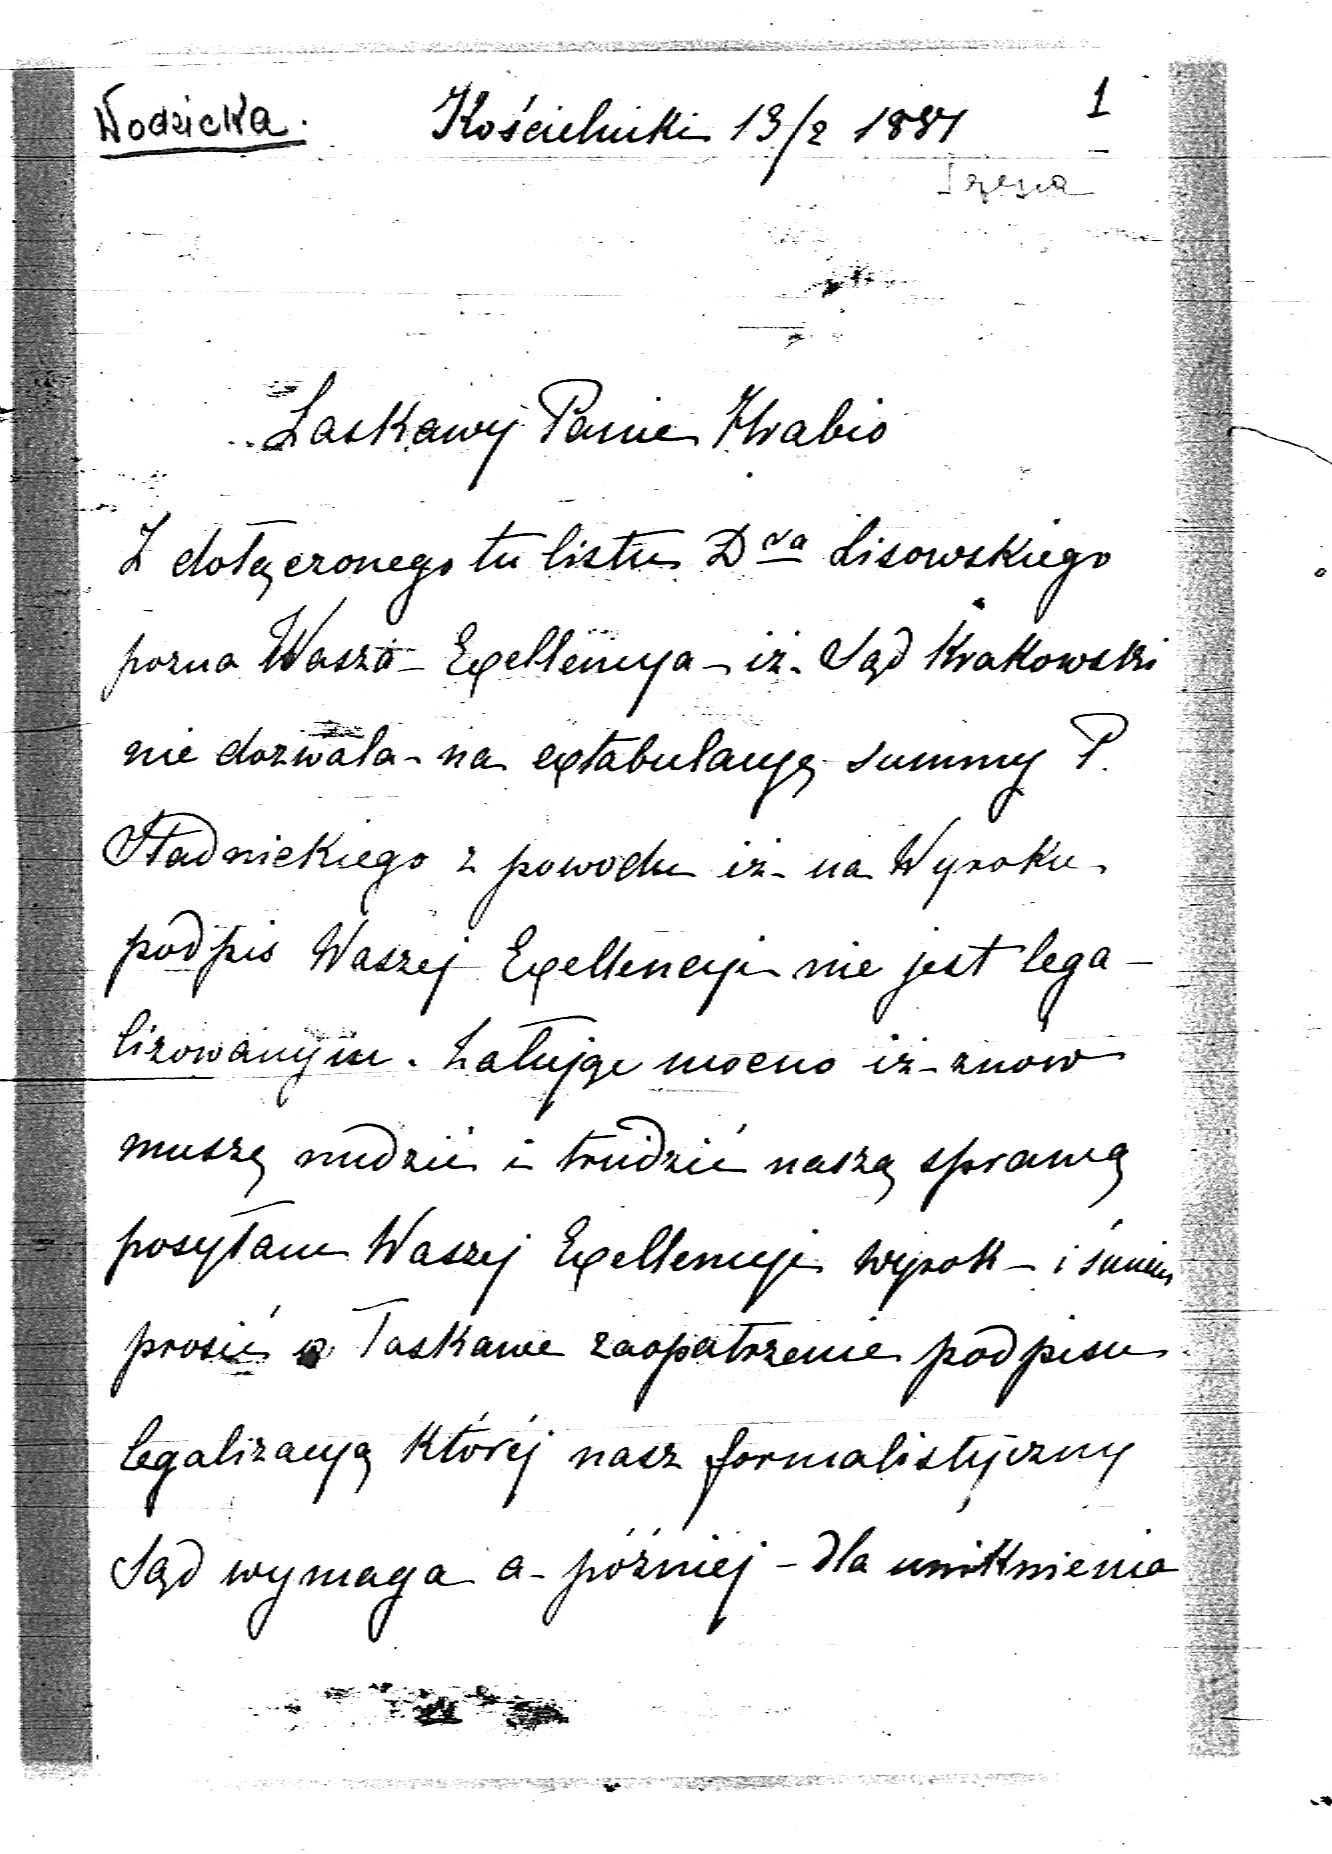 Wodzicka. Kościelniki 13/2 1881 1
Łaskawy Panie Hrabio
Z dołączonego tu listu Dra Lisowskiego
pozna Wasza Excellencya iż Sąd Krakowski
nie dozwala na extabulacyę summy P.
Stadnickiego z powodu iż na Wyroku
podpis Waszej Excellencyi nie jest lega-
lizowanym. Żałując mocno iż znów
muszę nudzić i trudzić naszą sprawą
posyłam Waszej Excellencyi wyrok – i śmiem
prosić o łaskawe zaopatrzenie podpisu
legalizacyą której nasz formalistyczny
Sąd wymaga a później – dla uniknienia